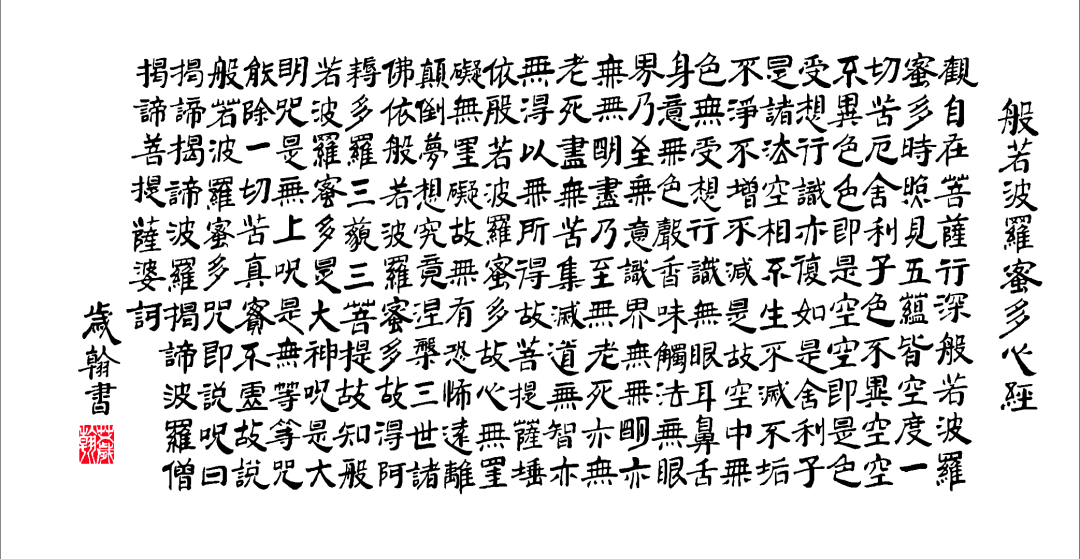 般若波羅蜜多心經
觀自在菩薩行深般若波羅
蜜多時照見五蘊皆空度一
切苦厄舍利子色不異空空
不異色色即是空空即是色
受想行識亦復如是舍利子
是諸法空相不生不滅不垢
不淨不增不減是故空中無
色無受想行識無眼耳鼻舌
身意無色聲香味觸法無眼
界乃至無意識界無無明亦
無無明盡乃至無老死亦無
老死盡無苦集滅道無智亦
無得以無所得故菩提薩埵
依般若波羅蜜多故心無罣
礙無罣礙故無有恐怖遠離
顛倒夢想究竟涅槃三世諸
佛依般若波羅蜜多故得阿
耨多羅三藐三菩提故知般
若波羅蜜多是大神呪是大
明呪是無上呪是無等等咒
能除一切苦真實不虛故說
般若波羅蜜多呪即說呪曰
揭諦揭諦波羅揭諦波羅僧
揭諦菩提薩婆訶
歲翰書